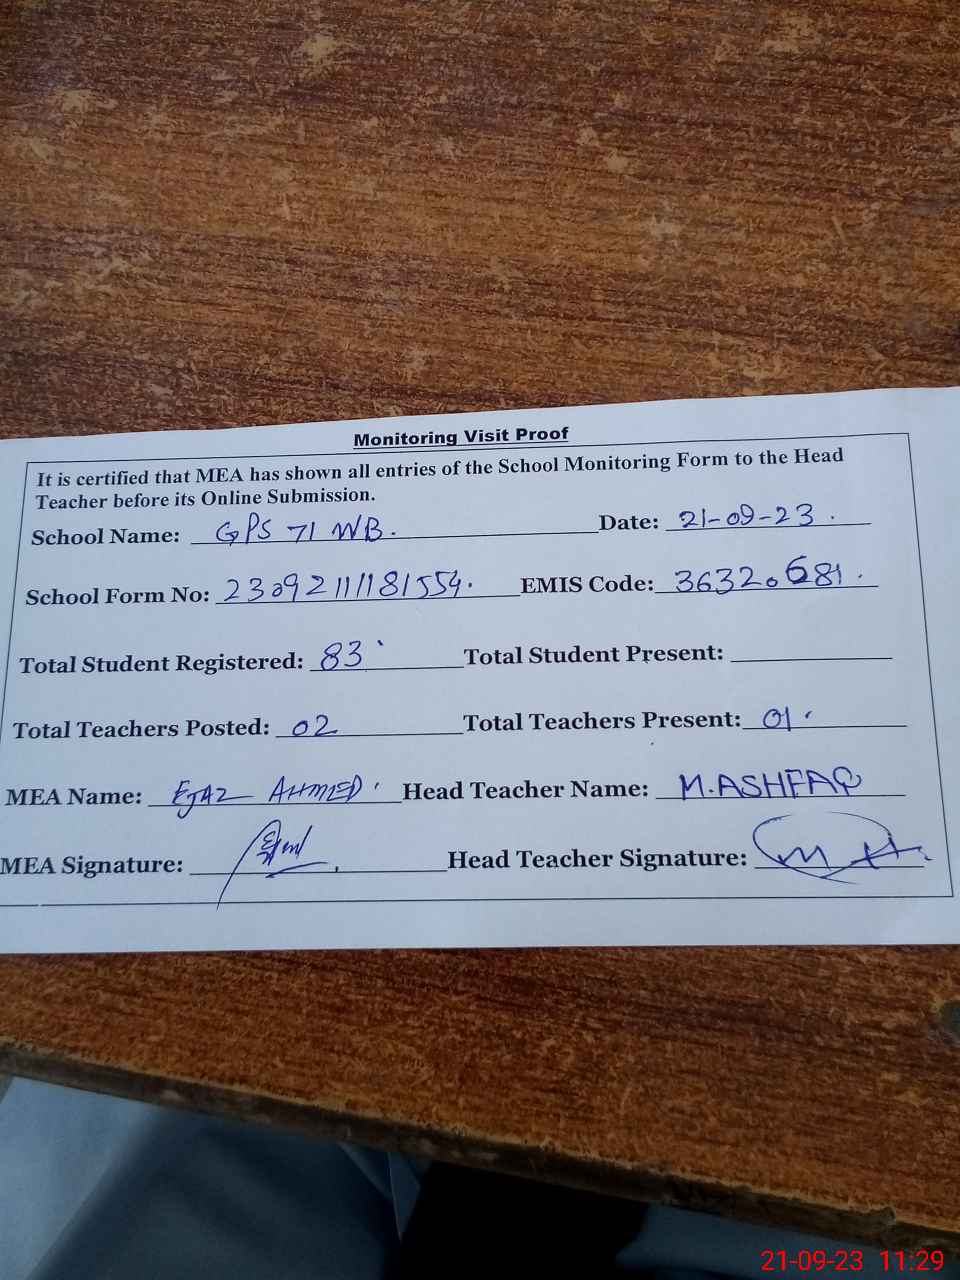 Monitoring Visit Proof
It is certified that MEA has shown all entries of the School Monitoring Form to the Head
Teacher before its Online Submission.
School Name: GPS 71 WB. Date: 21-09-23.
School Form No: 230921111181554. EMIS Code: 36320681.
Total Student Registered: 83 Total Student Present:
Total Teachers Posted: 02 Total Teachers Present: 01.
MEA Name: EJAZ AHMED. Head Teacher Name: M.ASHFAQ
MEA Signature: Head Teacher Signature:
21-09-23 11:29